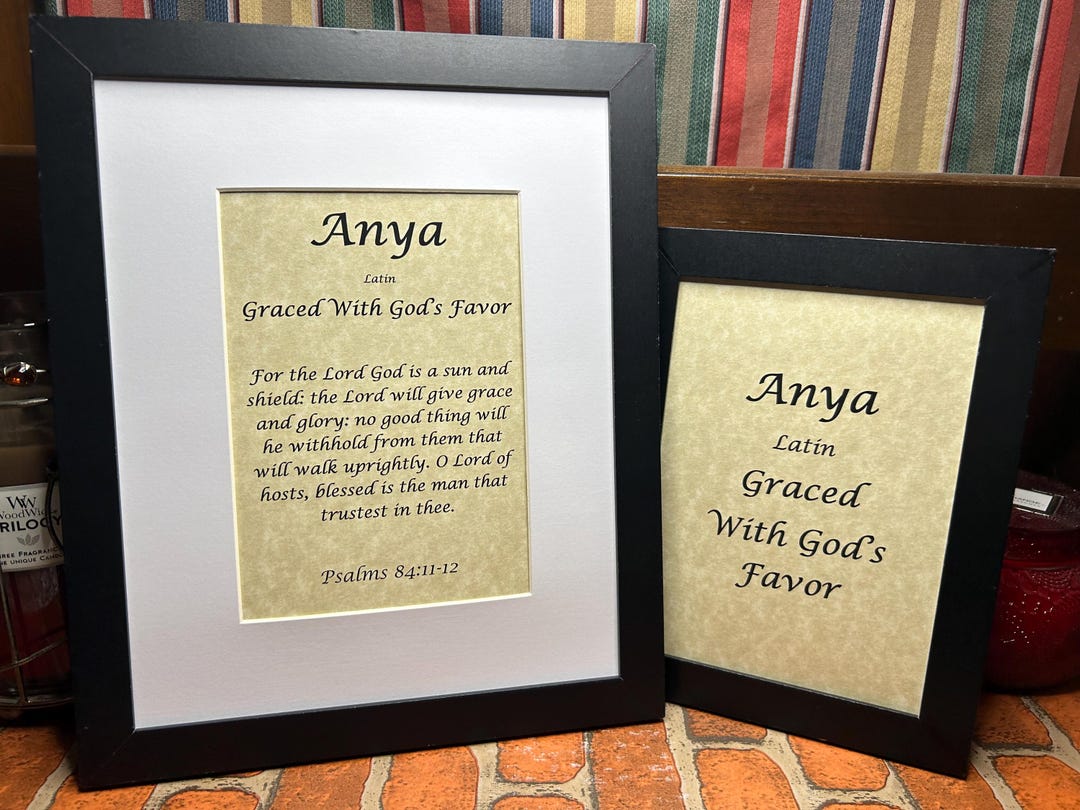 Anya
Latin
Graced With God's Favor
For the Lord God is a sun and
shield: the Lord will give grace
and glory: no good thing will
he withhold from them that
will walk uprightly. O Lord of
hosts, blessed is the man that
trustest in thee.
Psalms 84:11-12
Anya
Latin
Graced
With God's
Favor
WW
WoodWick
RILOGY
REE FRAGRANC
NE UNIQUE CANDL